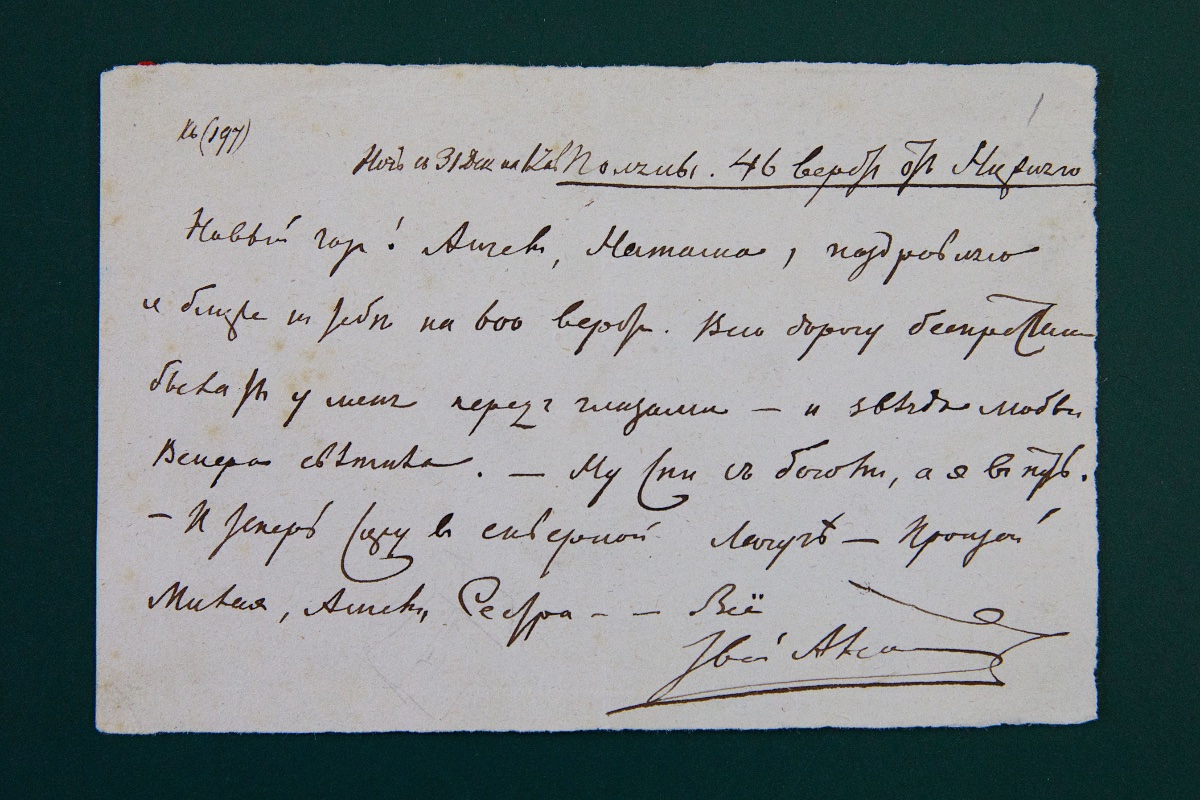 Къ (197)
Ночь съ 31 Дек на 1 Янв Полчаны. 46 верстъ отъ Нижнего
Новый годъ! Ангелъ, Наташа, поздравляю
я ближе къ тебѣ на 600 верстъ. Всю дорогу беспрестанно
былъ ты у меня передъ глазами — и звѣзда любви
Венера свѣтила. — Ну спи съ богомъ, а я въ путь.
— И теперь сижу въ скверной лачугѣ — Прощай
Милая, Ангелъ, Сестра — — Весь
Твой Алекса